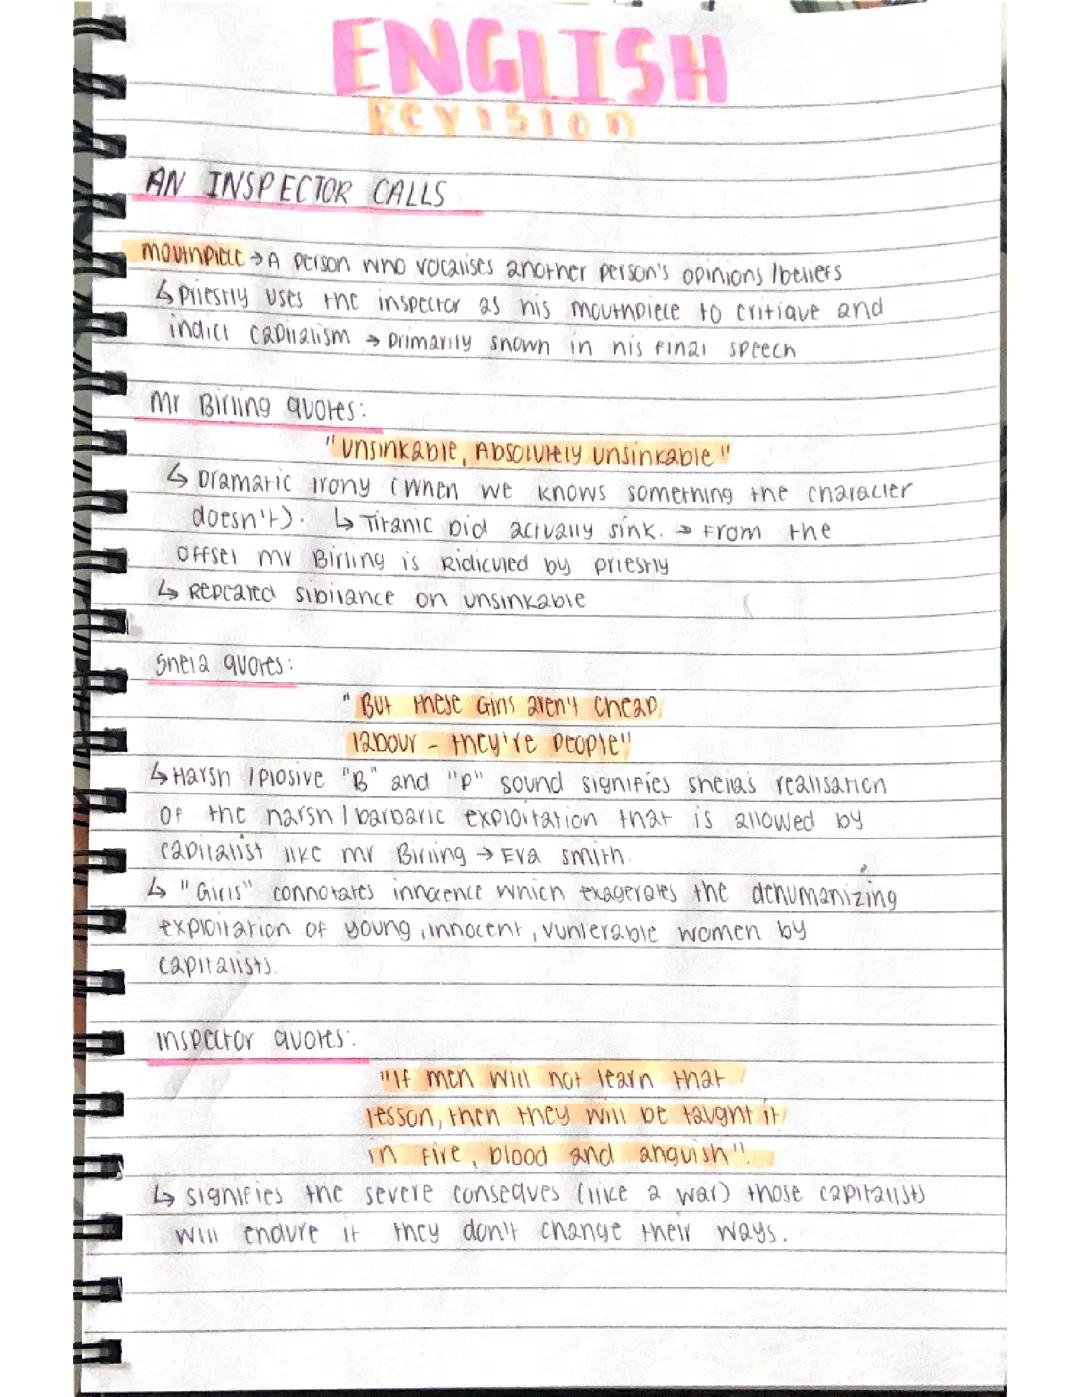 ENGLISH
Revision
AN INSPECTOR CALLS
mouthpiece → A person who vocalises another person's opinions / beliefs
↳ priestly uses the inspector as his mouthpiece to critique and
indict capitalism → primarily shown in his final speech
Mr Birling quotes:
"unsinkable, Absolutely unsinkable"
↳ Dramatic irony (when we knows something the character
doesn't). ↳ Titanic Did actually sink. → From the
offset mr Birling is Ridiculed by priestly
↳ Repeated sibilance on unsinkable
Shela quotes:
"But these Girls aren't cheap
labour - they're people"
↳ Harsh / plosive "B" and "p" sound signifies sheila's realisation
Of the harsh / barbaric exploitation that is allowed by
capitalist like mr Birling → Eva smith.
↳ "Girls" connotates innocence which exagerates the dehumanizing
exploitation of young, innocent, vunlerable women by
capitalists.
inspector quotes:
"If men will not learn that
lesson, then they will be taught it
in fire, blood and anguish".
↳ signifies the severe conseques (like a war) those capitalists
will endure if they don't change their ways.